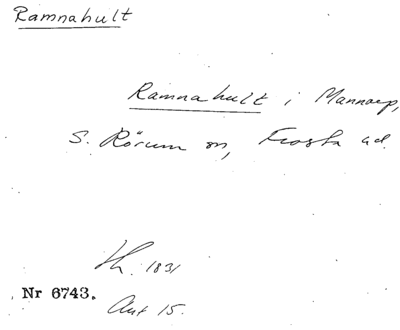 Ramnahult
Ramnahult i Mannarp,
S. Rörum sn, Frosta hd.
Lh. 1831
Nr 6743.
Akt 15.